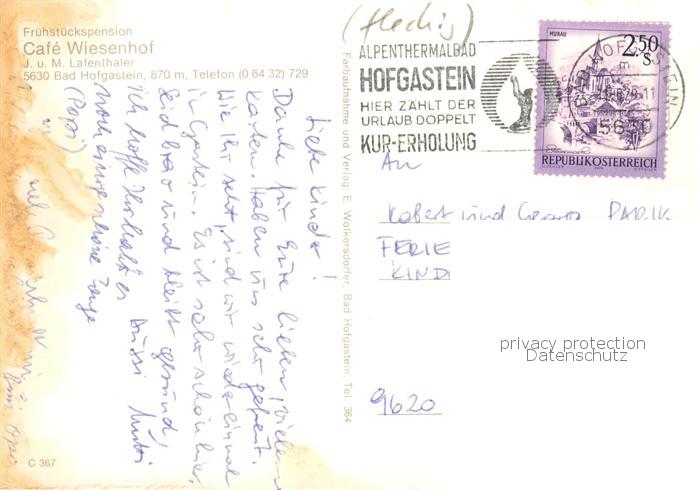 Frühstückspension
Café Wiesenhof
J. u. M. Lafenthaler
5630 Bad Hofgastein, 870 m, Telefon (0 64 32) 729
Liebe Kinder!
Danke für Eure lieben, vielen
Karten. Haben uns sehr gefreut.
Wie Ihr seht, sind wir wieder einmal
in Gastein. Es ist sehr schön hier.
Seid brav und bleibt gesund,
ich hoffe Ihr habt es Bussi Mutti
noch eine schöne Zeit
(Papi)
viel
Opa
C 367
Farbaufnahme und Verlag: E. Wolkersdorfer, Bad Hofgastein, Tel. 364
(fleckig)
ALPENTHERMALBAD
HOFGASTEIN
HIER ZÄHLT DER
URLAUB DOPPELT
KUR-ERHOLUNG
MURAU
2.50
S
REPUBLIK ÖSTERREICH
BAD HOFGASTEIN
5630
An
Robert und PARIK
FERIE
KIND
9620
privacy protection
Datenschutz